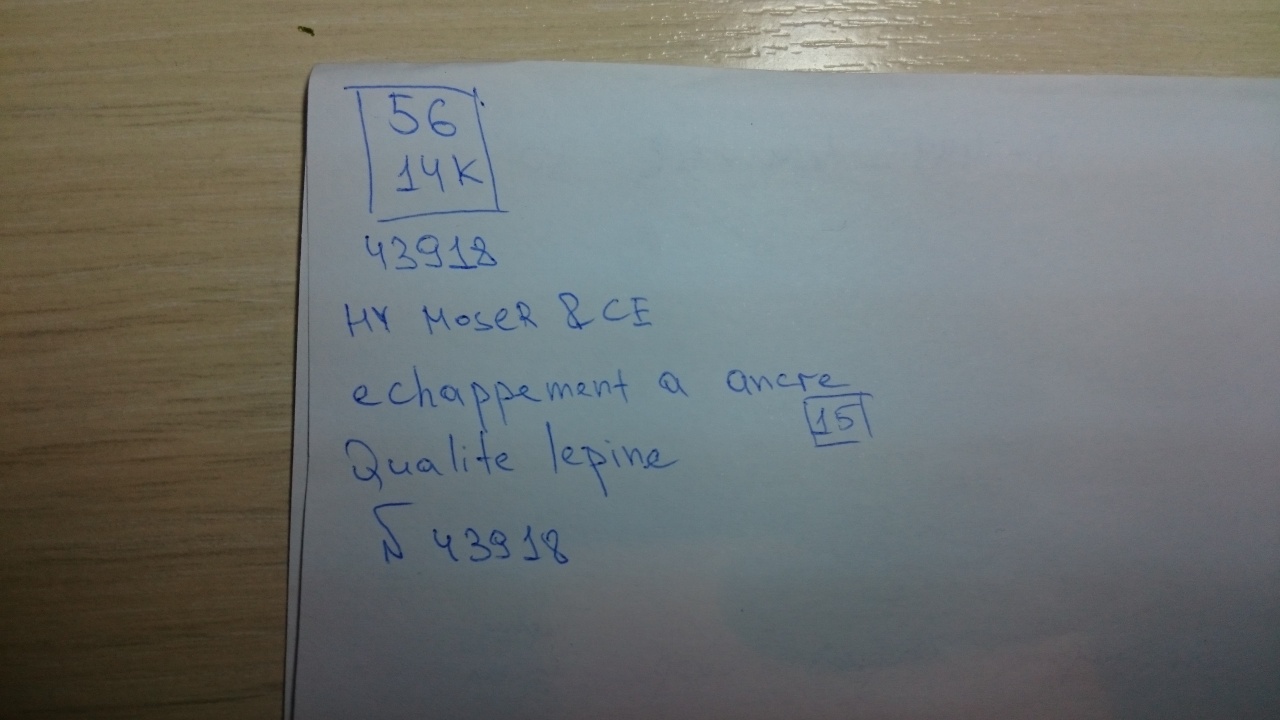 56
14K
43918
HY MOSER & CE
echappement a ancre
15
Qualite lepine
N 43918